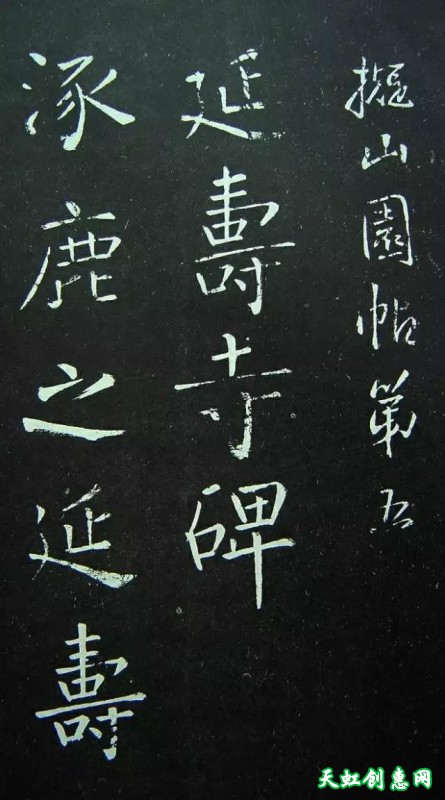 擬山園帖第五
延壽寺碑
涿鹿之延壽
天虹创惠网